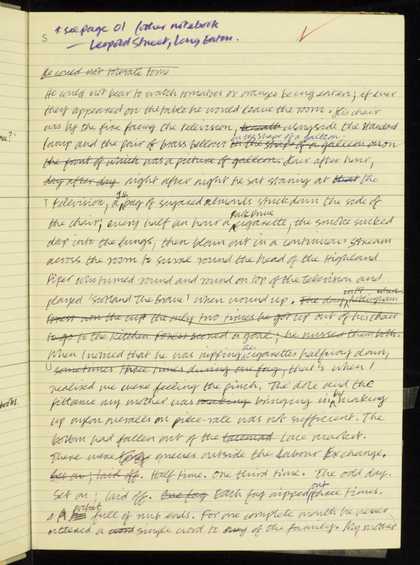 S
* see page 01 (other notebook
— Leopold Street, Long Eaton.
He could not tolerate tom
He could not bear to watch tomatoes or oranges being eaten; if ever
they appeared on the table he would leave the room. His chair
was by the fire facing the television, alongside the standard
lamp and the pair of brass bellows in the shape of a galleon on
the front of which was a picture of galleon. Hour after hour,
day after day night after night he sat staring at that the
television, a ¼ bag of sugared almonds stuck down the side of
the chair; every half an hour a Park Drive cigarette, the smoke sucked
deep into the lungs, then blown out in a continuous stream
across the room to swirl round the head of the Highland
Piper who turned round and round on top of the television and
played 'Scotland the Brave' when wound up. The day Nottingham
Forest won the cup the only two times he got up out of his chair
to go to the kitchen Forest scored a goal; he missed them both.
When I noticed that he was nipping cigarettes halfway down,
sometimes three times during one fag, that's when I
realized we were feeling the pinch. The dole and the
pittance my mother was making bringing in by making
up nylon on piece-rate was not sufficient. The
bottom had fallen out of the lace market.
There were queues outside the Labour Exchange.
Set on; laid off. Half time. One third time. The odd day.
Set on; laid off. One fag Each fag nipped out three times.
A pocket full of nut ends. For one complete month he never
uttered a word single word to any of the family. My mother